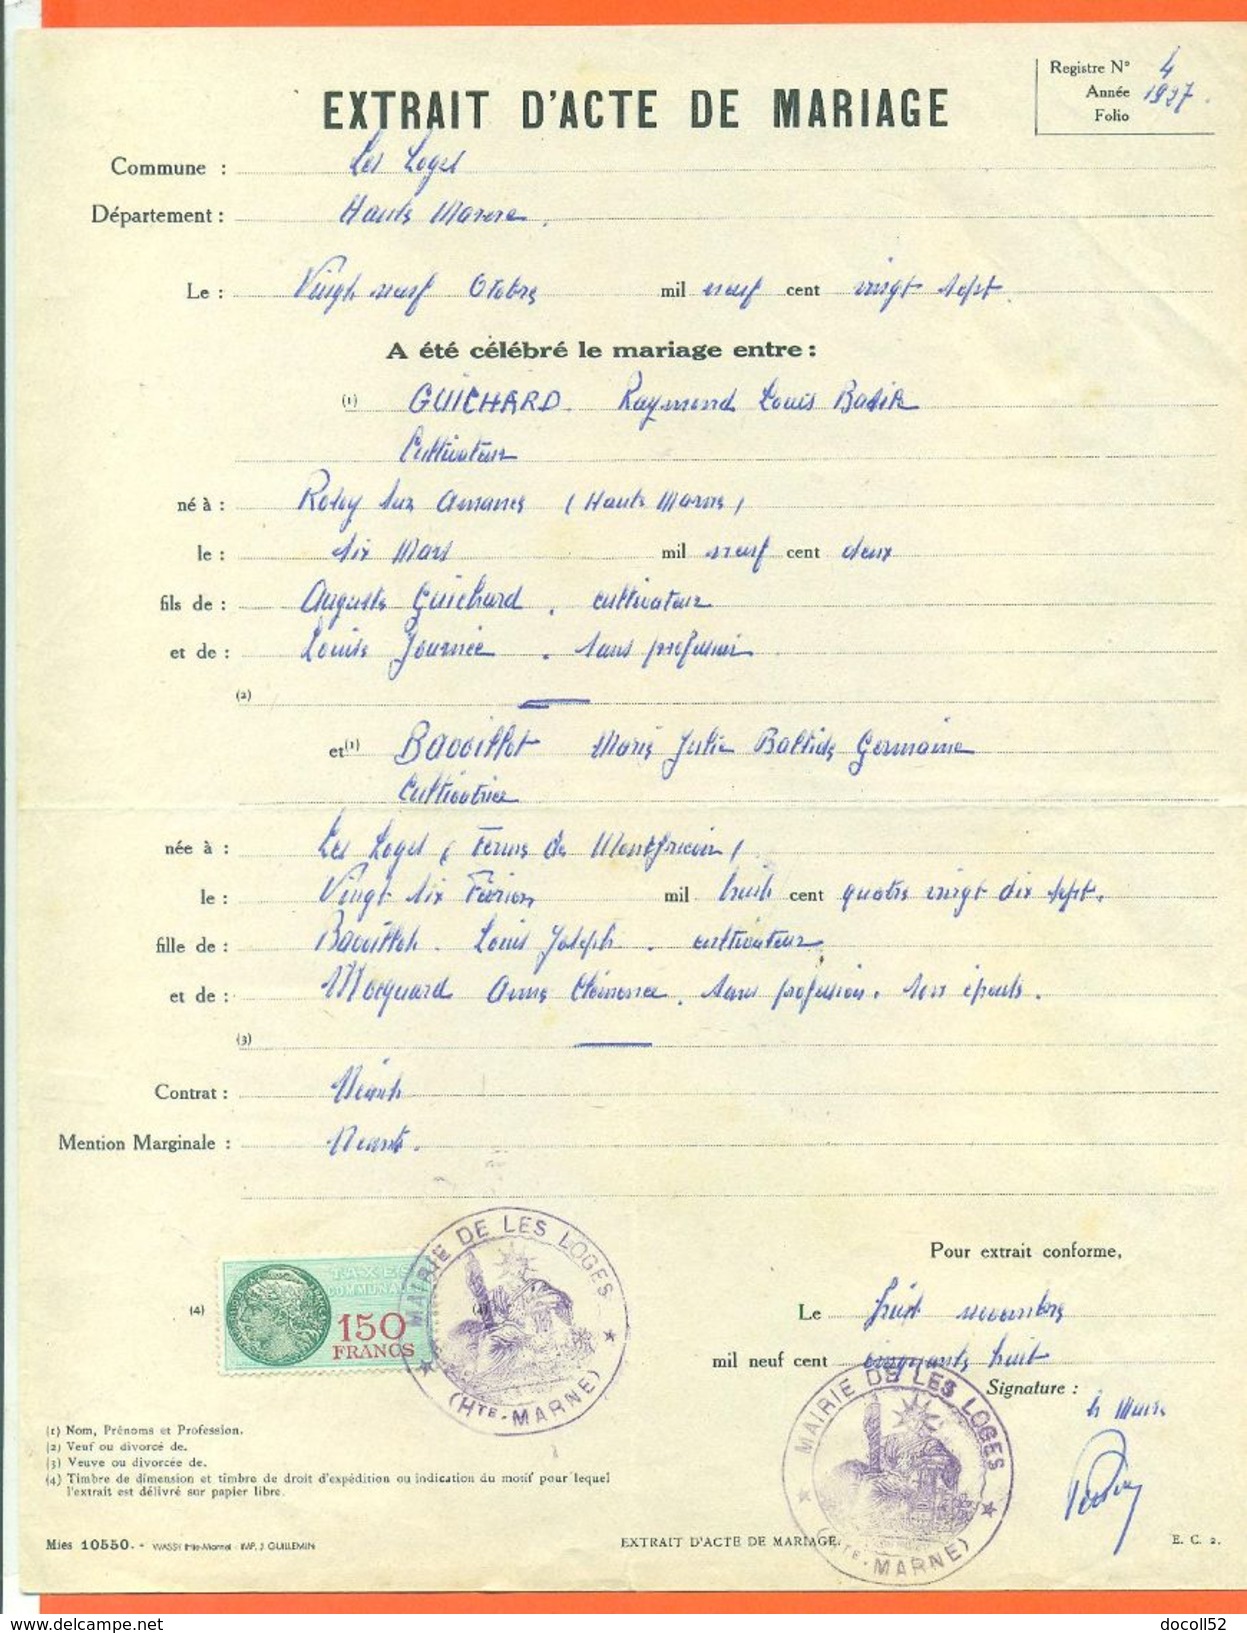 Registre N° 4
Année 1927.
Folio
EXTRAIT D'ACTE DE MARIAGE
Commune : Les Loges
Département : Haute Marne.
Le : Vingt neuf Octobre mil neuf cent vingt sept.
A été célébré le mariage entre :
(1) GUICHARD Raymond Louis
Cultivateur
né à : Amance (Haute Marne)
le : dix Mars mil neuf cent deux
fils de : Auguste Guichard. cultivateur
et de : Louise Journée. sans profession
(2)
et (1) Bavoillot Marie Julie Germaine
Cultivatrice
née à : Les Loges (Ferme de)
le : Vingt six Février mil huit cent quatre vingt dix sept.
fille de : Bavoillot. Louis Joseph. cultivateur
et de : Mocquard Anne Clémence. sans profession. son épouse.
(3)
Contrat : Néant
Mention Marginale : Néant.
Pour extrait conforme,
(4)
TAXES COMMUNALES
150
FRANCS
MAIRIE DE LES LOGES
(HTE-MARNE)
Le huit novembre
mil neuf cent cinquante huit
Signature :
le Maire
MAIRIE DE LES LOGES
(HTE-MARNE)
(1) Nom, Prénoms et Profession.
(2) Veuf ou divorcé de.
(3) Veuve ou divorcée de.
(4) Timbre de dimension et timbre de droit d'expédition ou indication du motif pour lequel
l'extrait est délivré sur papier libre.
Mies 10550. - WASSY (Hte-Marne) - IMP. J. GUILLEMIN
EXTRAIT D'ACTE DE MARIAGE.
E. C. 2.
docoll52